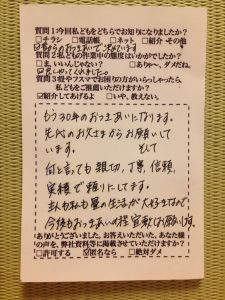 質問1今回私どもをどちらでお知りになりましたか?
□チラシ □電話帳 □ネット □紹介 その他
質問2私どもの作業中の態度はいかがでしたか?
□ま、いいんじゃない? □ありゃ~、ダメだね。
質問3畳やフスマでお困りの方がいらっしゃったら、
私どもをご推薦いただけますか?
☑紹介してあげるよ □いや、教えない。
もう30年のおつきあいになります。
先代のお父さまからお願いして
います。 そして
何と言っても親切、丁寧、信頼、
実績で頼りにしてます。
主人も私も畳の生活が大好きなので、
今後もおつきあいの程宜敷くお願いします。
ありがとうございました。お答えいただいた、あなた様
の声を、弊社資料等に掲載させていただけますか?
□許可する ☑匿名なら □絶対ダメ